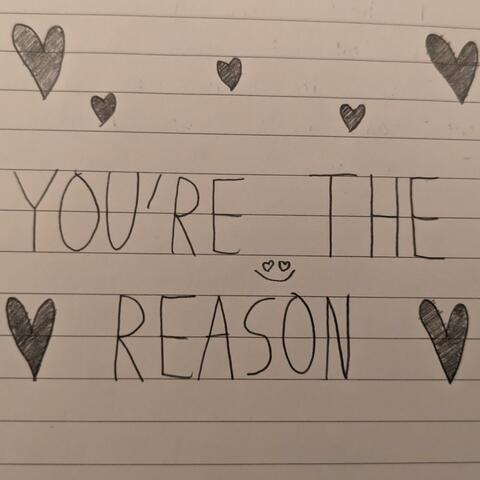 YOU'RE THE
REASON